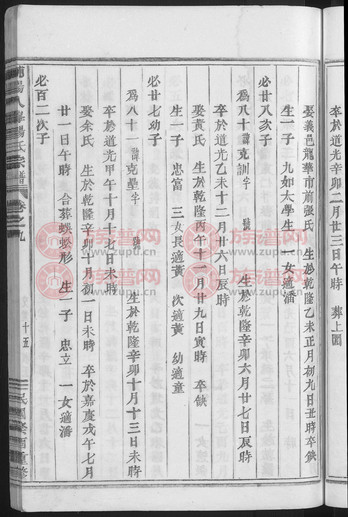 卒於道光辛卯二月廿三日午時 葬上園
娶義邑龍華市前張氏 生於乾隆乙未正月初九日丑時卒缺
生一子 九如太學生 一女適潘
必廿八次子
爲八十諱克訓字 號 生於乾隆辛卯六月廿七日辰時
卒於道光乙未十二月廿六日辰時
娶黃氏 生於乾隆丙午十一月廿九日寅時 卒缺
生一子 忠富 三女長適黃 次適黃 幼適童
必廿七幼子
爲八十一諱克壘字 號 生於乾隆辛卯十月十三日未時
卒於道光甲午十月十七日未時
娶余氏 生於乾隆辛卯十月初一日未時 卒於嘉慶戊午七月
廿一日午時 合葬蜈蚣形 生一子 忠立 一女適潘
必百二次子
楊氏宗譜 卷之九 十五
族譜网